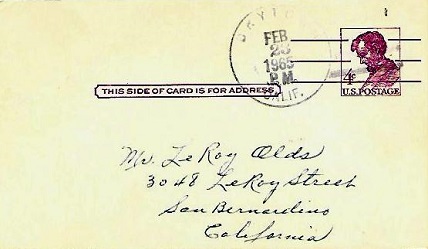 FEB
23
1965
P.M.
CALIF.
4¢
U.S. POSTAGE
THIS SIDE OF CARD IS FOR ADDRESS
Mr. LeRoy Olds
3048 LeRoy Street
San Bernardino
California